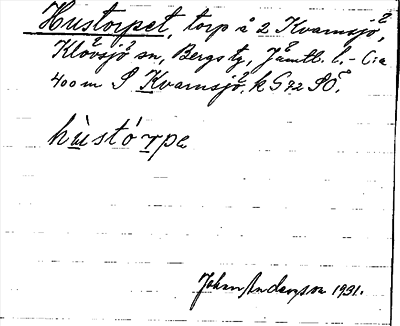 Hustorpet, torp å 2 Kvarnsjö,
Klövsjö sn, Bergs tg, Jämtl. l. - C:a
400 m S Kvarnsjö. k G 92 SÖ.
hùstórpe
Johan Anderson 1931.